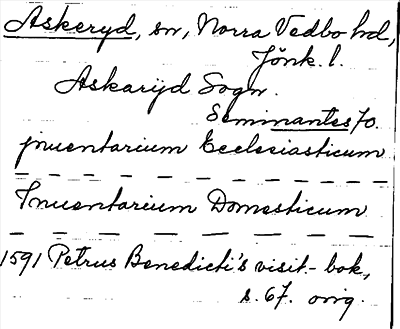 Askeryd, sn, Norra Vedbo hd,
Jönk. l.
Askarijd Sogn.
Seminantes 70.
jnuentarium Ecclesiasticum
Jnuentarium Domesticum
1591 Petrus Benedicti's visit.-bok,
s. 67. orig.